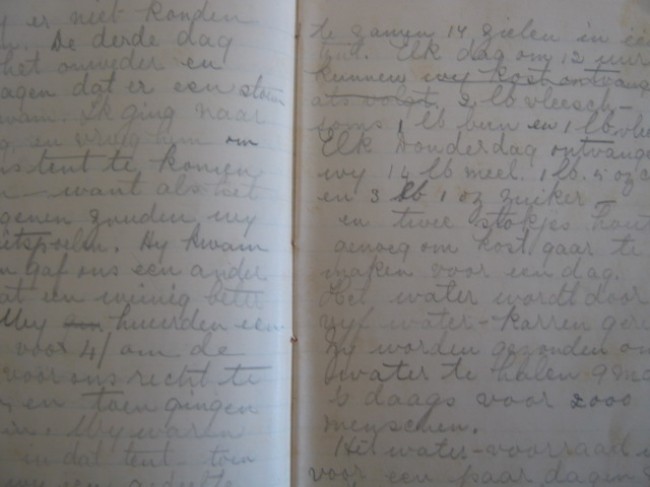 y er niet konden
De derde dag
het onweder en
agen dat er een storm
kwam. Ik ging naar
en vroeg hem om
ns tent te komen
want als het
genen zouden wy
uitspoelen. Hy kwam
n gaf ons een ander
at een weinig beter
Wey huurden een
voor 4/ om de
voor ons recht te
en toen gingen
in. Wy waren
in dat tent toen
te zamen 14 zielen in ee
tent. Elk dag om 12 uur
kunnen wy kost ontvang
als volgt, 2 lb vleesch-
soms 1 lb bun en 1 lb vle
Elk Donderdag ontvange
wy 14 lb meel. 1 lb. 5 oz c
en 3 lb 1 oz zuiker -
en twee stokjes hout
genoeg om kost gaar te
maken voor een dag.
Het water wordt door
vyf water-karren gere
Zy worden gezonden om
water te halen
6 daags voor 2000
menschen.
Het water-voorraad
voor een paar dagen